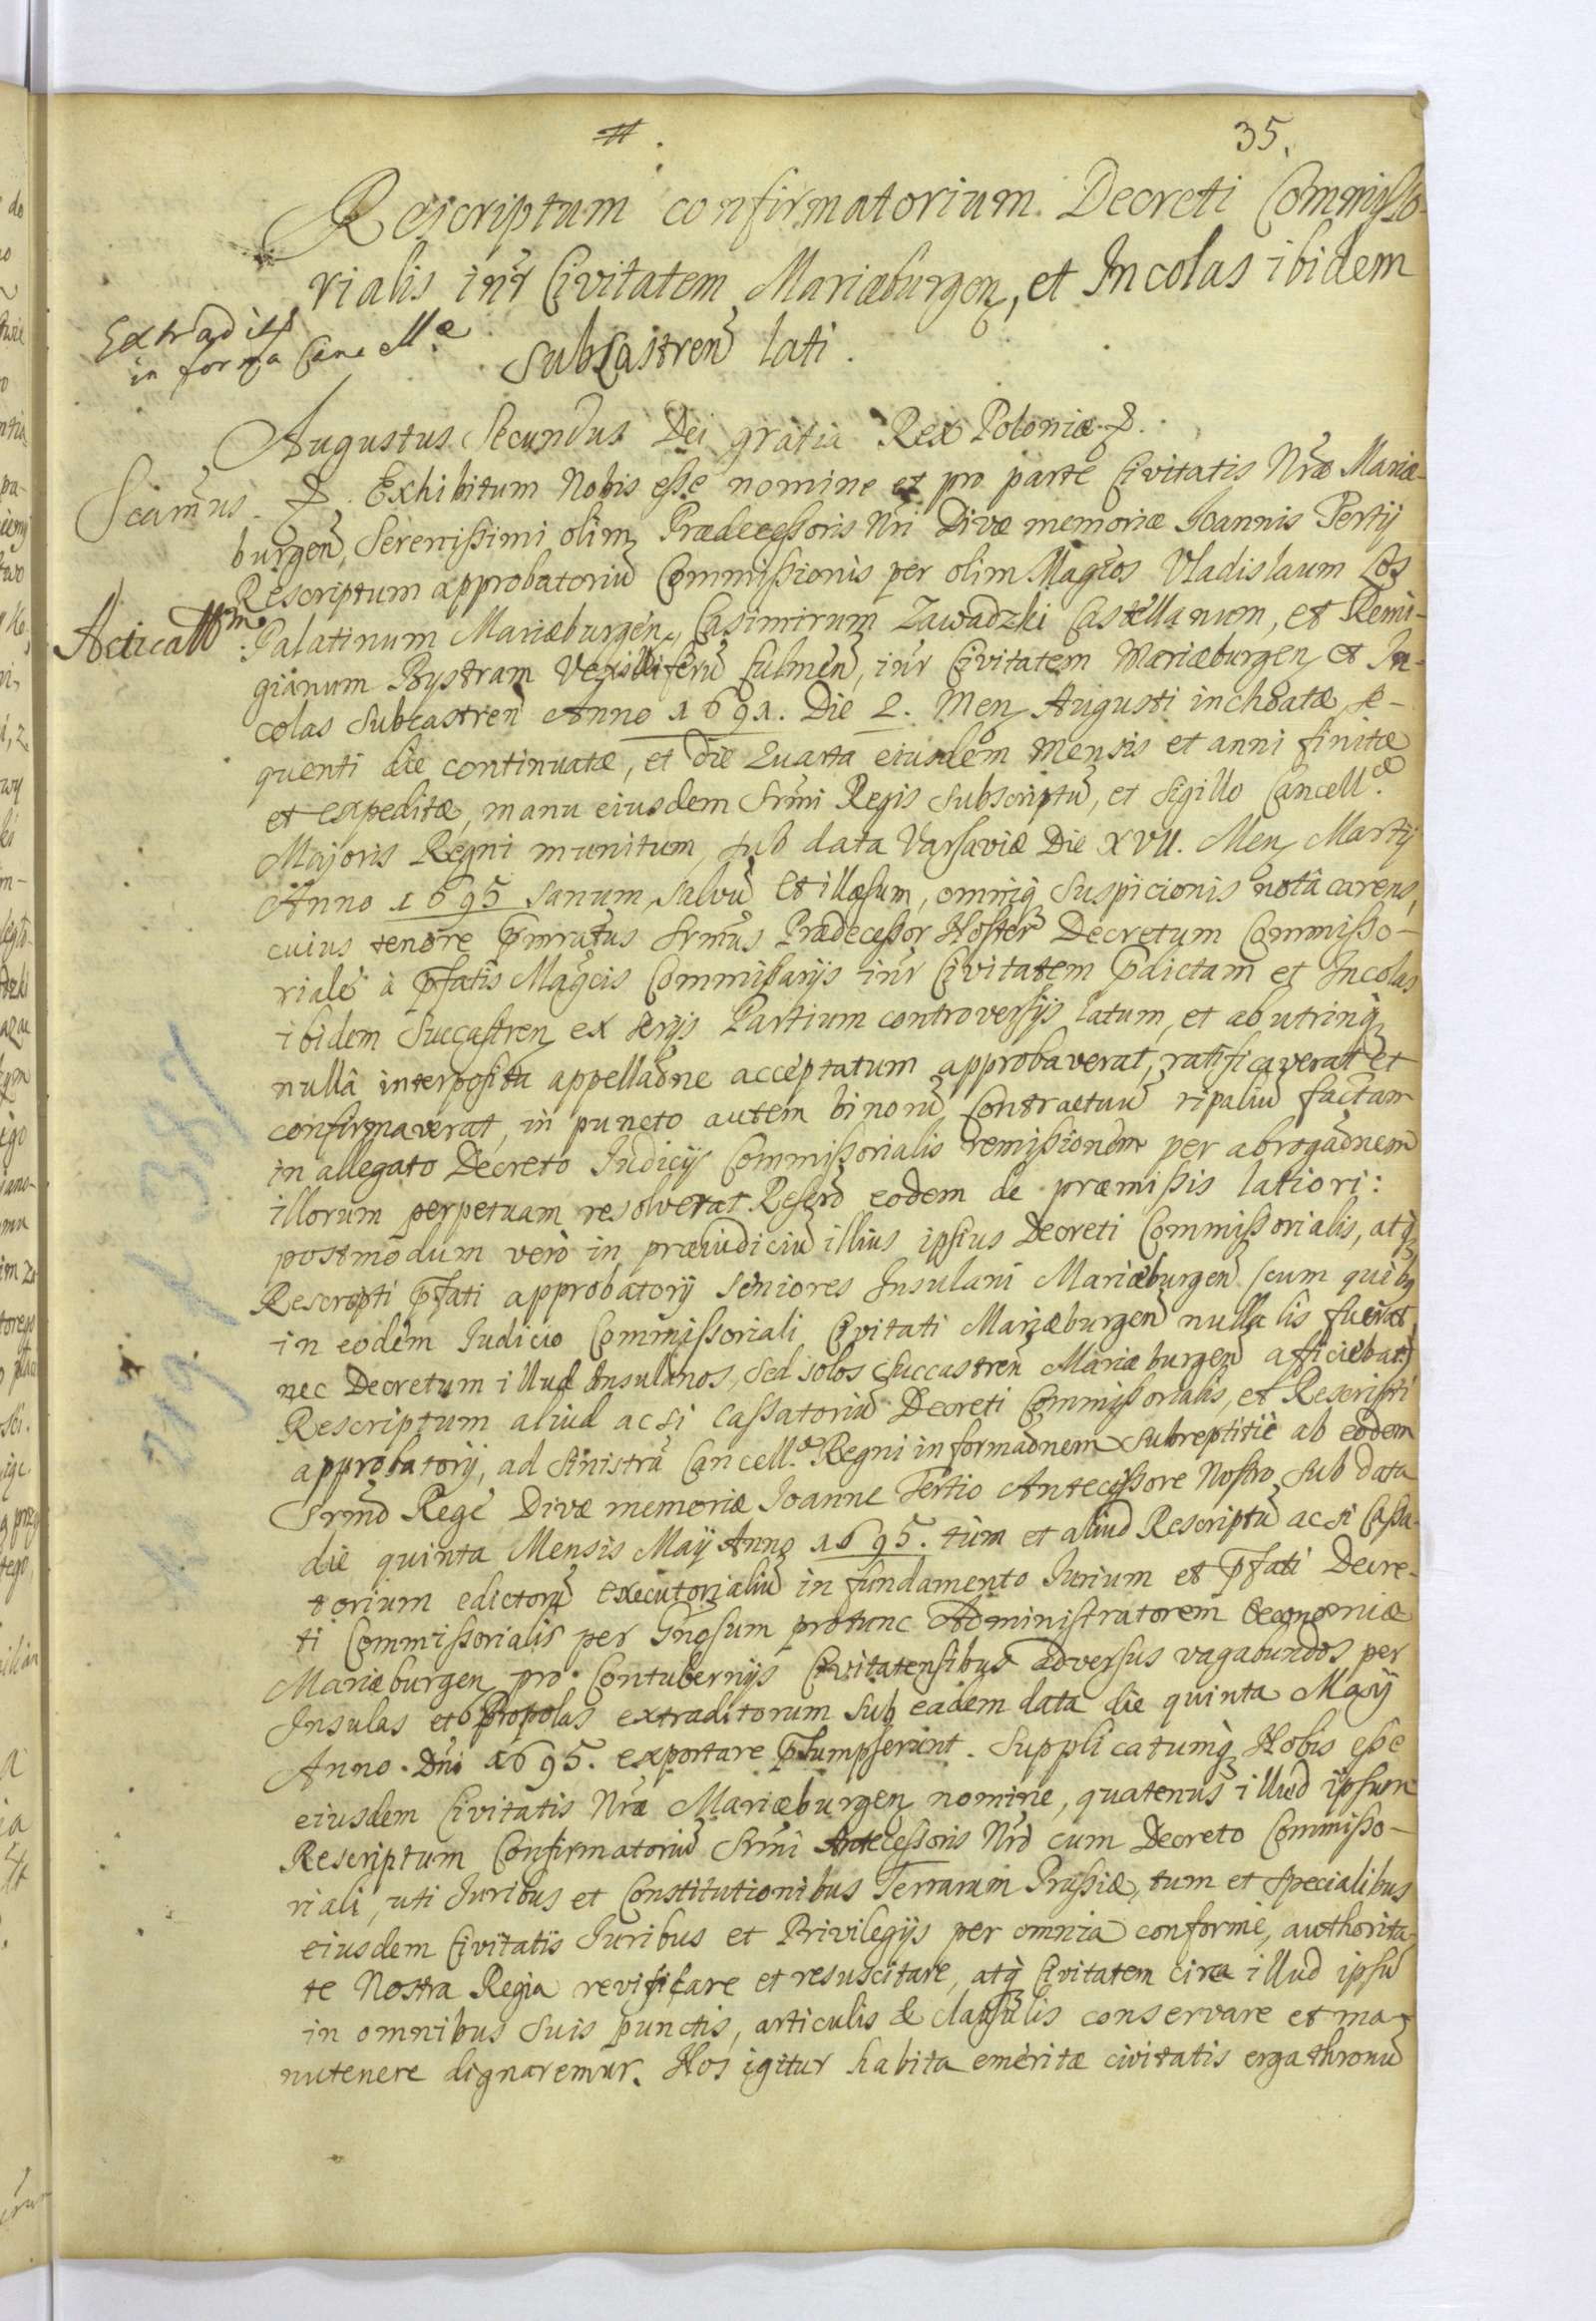 #.
35.
Rescriptum confirmatorium Decreti Commisso-
rialis intr Civitatem Mariæburgen, et Incolas ibidem
Extradit
in forma Canc ellæ
Subcastren lati.
Augustus Secundus Dei gratia Rex Poloniæ &.
Scimus. &. Exhibitum Nobis esse nomine et pro parte Civitatis Nræ Mariæ-
burgen, Serenissimi olim Prædecessoris Nri Divæ memoriæ Ioannis Tertij
Rescriptum approbatoriũ Commissionis per olim Magcos Vladislaum Los
Palatinum Mariæburgen, Casimirum Zawadzki Castellanum, et Remi-
gianum Bystram Vexilliferũ Culmen, intr Civitatem Mariæburgen et In-
colas Subcastren Anno 1691. Die 2. Men Augusti inchoatæ, se-
quenti die continuatæ, et die Quarta eiusdem Mensis et anni finitæ
et expeditæ, manu eiusdem Srmi Regis subscriptũ, et Sigillo Cancell.æ
Majoris Regni munitum, sub data Varsaviæ Die XVII. Men Martij
Anno 1695 sanum, salvũ et illæsum, omniq suspicionis notâ carens,
cuius tenore Pmratus Srmus Prædecessor Noster Decretum Commisso-
riale à pfatis Magcis Commissarijs intr Civitatem pdictam et Incolas
ibidem Succastren ex serijs Partium controversijs latum, et ab utrinq
nullâ interposita appellaõne acceptatum approbaverat, ratificaverat et
confirmaverat, in puncto autem binorũ Contractuũ ripaliũ factam
in allegato Decreto Iudicij Commissorialis remissionem per abrogaõnem
illorum perpetuam resolverat Rescrõ eodem de præmissis latiori:
postmodum verò in præiudiciũ illius ipsius Decreti Commissorialis, atq
Rescripti pfati approbatorij Seniores Insulani Mariæburgen (cum quibq
in eodem Iudicio Commissoriali Civitati Mariæburgen nulla lis fuerat,
nec Decretum illud Insulanos, sed solos Succastren Mariæburgen afficiebat)
Rescriptum aliud ac si Cassatoriũ Decreti Commissorialis, et Rescripti
approbatorij, ad sinistrã Cancell.æ Regni informaõnem subreptitiè ab eodem
Srmo Rege Divæ memoriæ Ioanne Tertio Antecessore Nostro, sub data
die quinta Mensis Maij Anno 1695. tùm et aliud Rescriptũ ac si Cassa-
torium edictorũ executorialiũ in fundamento Iurium et pfati Decre-
ti Commissorialis per Gnosum protunc Administratorem Oeconomiæ
Mariæburgen pro Contubernijs Civitatensibus adversus vagabundos per
Insulas et Propolas extraditorum sub eadem data die quinta Maij
Anno Dni 1695. exportare psumpserint. Supplicatumq Nobis esse
eiusdem Civitatis Nræ Mariæburgen nomine, quatenus illud ipsum
Rescriptum Confirmatoriũ Srmi Antecessoris Nri cum Decreto Commisso-
riali, uti Iuribus et Constitutionibus Terrarum Prussiæ, tum et specialibus
eiusdem Civitatis Iuribus et Privilegijs per omnia conforme, authorita-
te Nostra Regia revificare et resuscitare, atq Civitatem circa illud ipsũ
in omnibus suis punctis, articulis & clausulis conservare et ma-
nutenere dignaremur. Nos igitur habita emeritæ civitatis erga thronũ